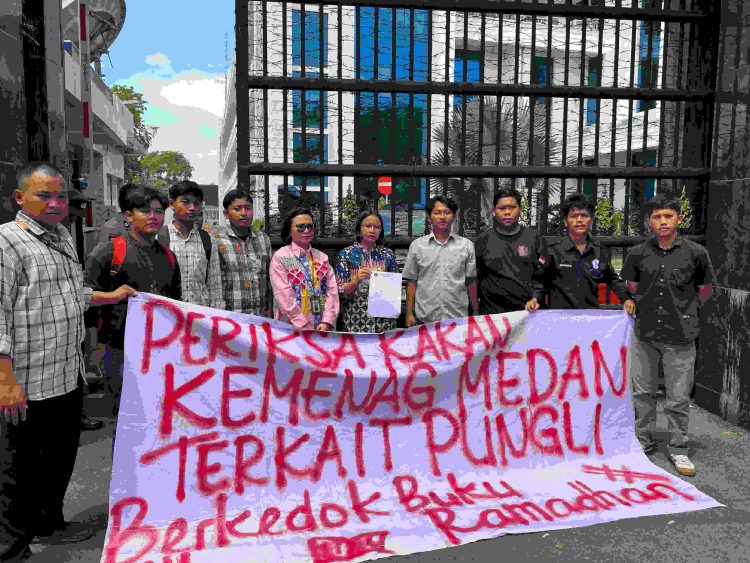 PERIKSA KAKAN
KEMENAG MEDAN
TERKAIT PUNGLI
Berkedok Buku
Ramadhan